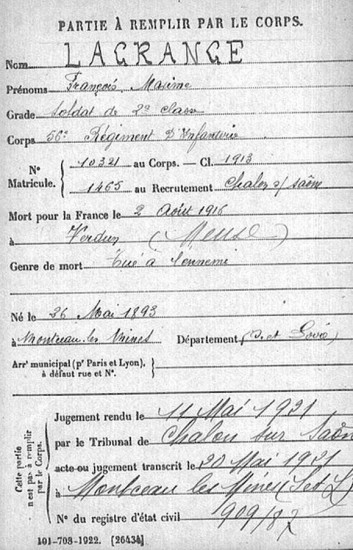 PARTIE À REMPLIR PAR LE CORPS.
Nom LAGRANGE
Prénoms François Maxime
Grade Soldat de 2e classe
Corps 56e Régiment d'Infanterie
N° 10321 au Corps. — Cl. 1913
Matricule. 1465 au Recrutement Chalon s/ Saône
Mort pour la France le 2 Août 1916
à Verdun (Meuse)
Genre de mort Tué à l'ennemi
Né le 26 Mai 1893
à Montceau-les-Mines Département (S. et Loire)
Arr' municipal (p' Paris et Lyon), à défaut rue et N°.
Cette partie n'est pas à remplir par le Corps.
Jugement rendu le 11 Mai 1921
par le Tribunal de Chalon sur Saône
acte ou jugement transcrit le 20 Mai 1921
à Montceau les Mines (S et L)
N° du registre d'état civil 909/87
101-708-1922. [26434]